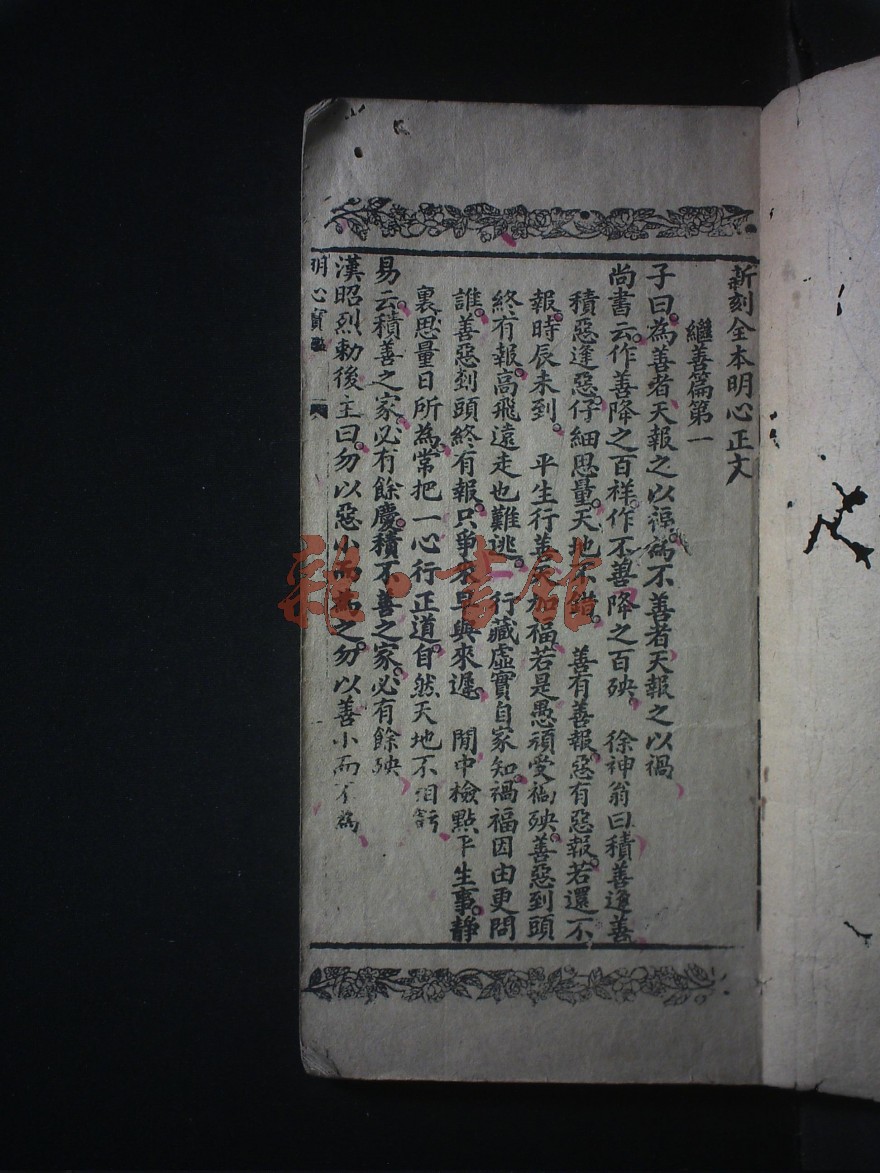 新刻全本明心正文
繼善篇第一
子曰。為善者天報之以福。為不善者天報之以禍
尚書云。作善降之百祥。作不善降之百殃。 徐神翁曰積善逢善
積惡逢惡。仔細思量。天地不錯。 善有善報。惡有惡報。若還不
報。時辰未到。 平生行善天加福。若是愚頑受禍殃。善惡到頭
終有報。高飛遠走也難逃。 行藏虛實自家知。禍福因由更問
誰。善惡到頭終有報。只爭來早與來遲。 閒中檢點平生事。靜
裏思量日所為。常把一心行正道。自然天地不相虧
易云。積善之家。必有餘慶。積不善之家。必有餘殃
漢昭烈勅後主曰。勿以惡小而為之。勿以善小而不為
明心寶
雜·書館